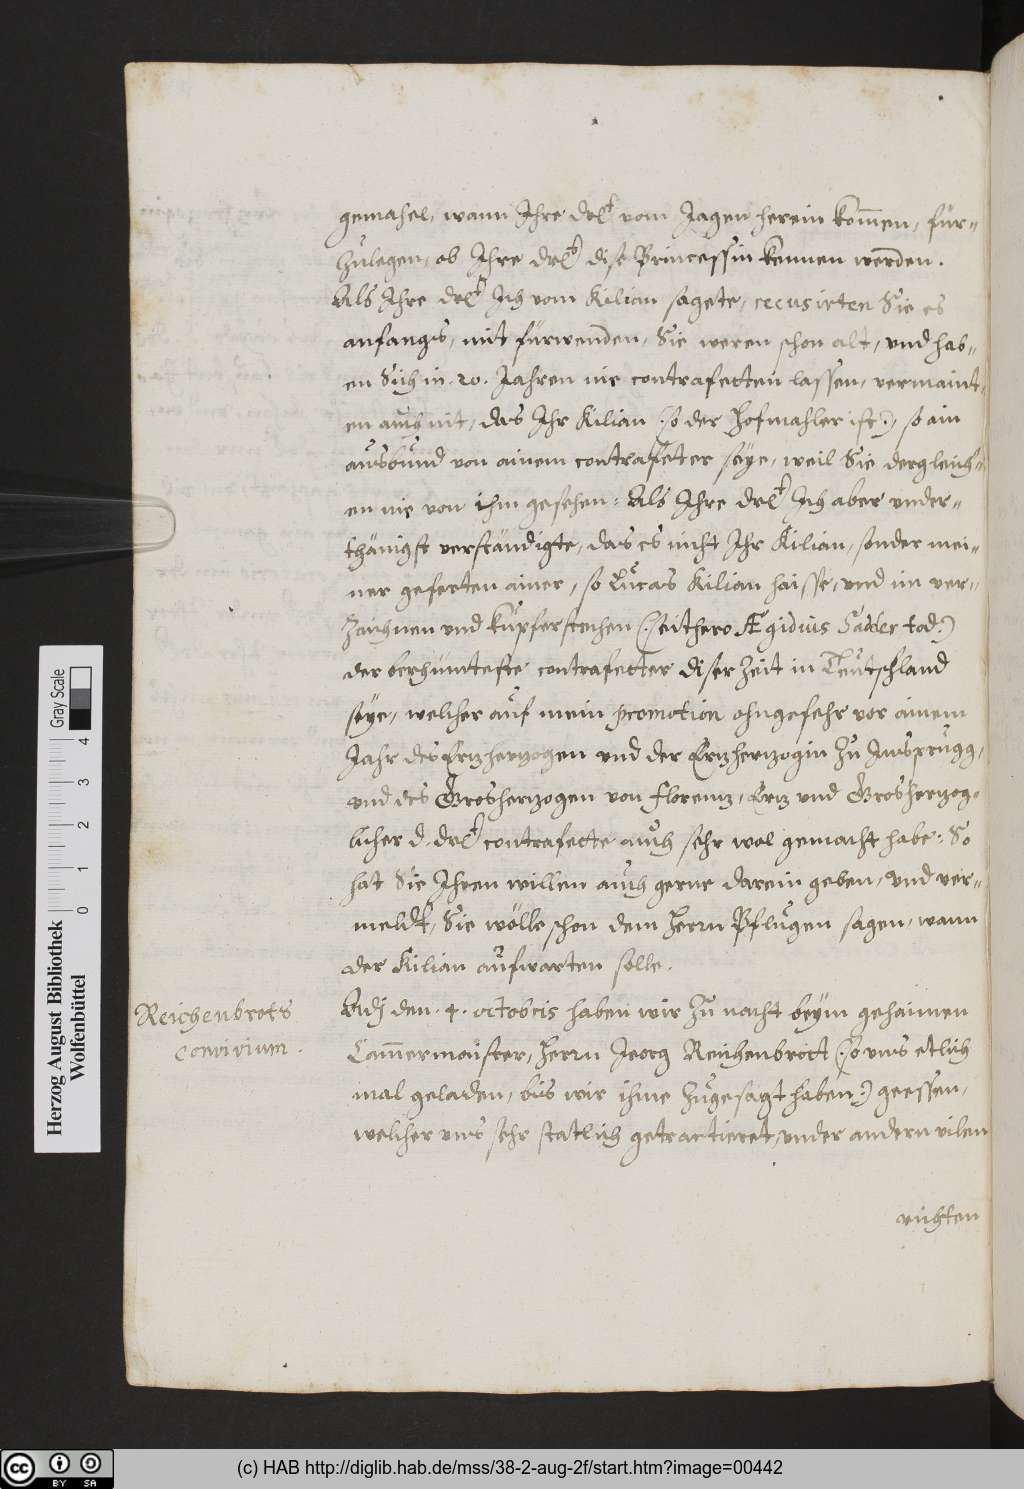 gemahel, wann Ihre drlt vom Jagen herein kom̄en, für-
Zulegen, ob Ihre drlt dise Princessin kennen werden.
Als Ihre drlt Ich vom Kilian sagete, recusirten Sie es
anfangs, mit fürwenden, Sie weren schon alt, und hab-
en Sich in .20. Jahren nie contrafetten lassen, vermaint-
en auch nit, das Ihr Kilian (:so der Hofmahler ist:), so ain
ausbund von ainem contrafeter seye, weil Sie dergleich-
en nie von ihm gesehen: Als Ihre drlt Ich aber under-
thänigst verständigte, das es nicht Ihr Kilian, sonder mei-
ner geferten ainer, so Lucas Kilian haisse, und im ver-
Zaichnen und kupferstechen (:seithero Ægidius Sadder tod:)
der berhümteste contrafetter diser Zeit in Teutschland
seye, welcher auf mein promotion ohngefehr vor ainem
Jahr des Erzherzogen und der Erzherzogin Zu Insprugg,
und des Grosherzogen von florenz, Erz und Grosherzog-
licher d. drlt contrafette auch sehr wol gemacht habe: So
hat Sie Ihren willen auch gerne darein geben, und ver-
meldt, Sie wölle schon dem Herrn Pflugen sagen, wann
der Kilian aufwarten solle.
Reichenbrots
convivium.
Adj den .4. octobris haben wir Zu nacht beym gehaimen
Cam̄ermaister, Herrn Jeorg Reichenbrott (:so uns etlich
mal geladen, bis wir ihme Zugesagt haben:) geessen,
welcher uns sehr statlich getractieret, under andern vilen
richten
Herzog August Bibliothek
Wolfenbüttel
Gray Scale
0 1 2 3 4
cc BY SA
(c) HAB http://diglib.hab.de/mss/38-2-aug-2f/start.htm?image=00442